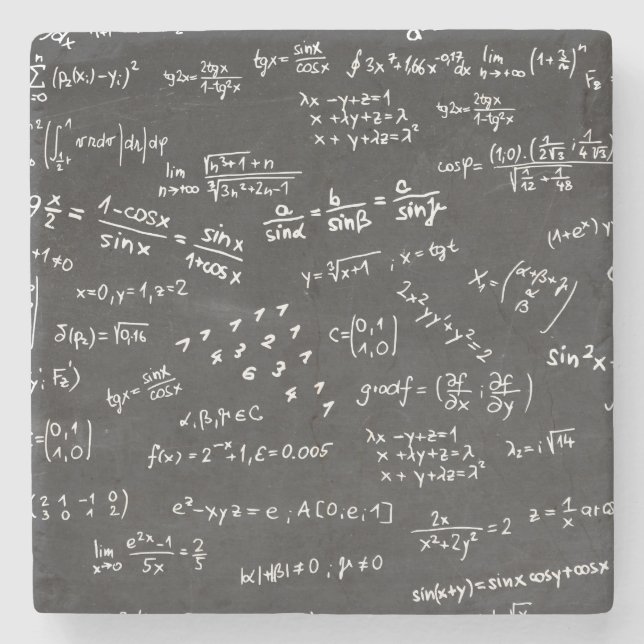 ∑ (p₂(xᵢ)-yᵢ)²
tg2x = 2tgx / 1-tg²x
tgx = sinx / cosx
∮ 3x⁷+1,66x⁻⁰·¹⁷ dx
lim n→+∞ (1+3/n)ⁿ
λx -y+z=1
x +λy+z=λ
x + y+λz=λ²
tg2x = 2tgx / 1-tg²x
lim n→+∞ √(n³+1) + n / ∛(3n²+2n-1)
cosφ = (1,0).(1/2√3 ; 1/4√3) / √(1/12 + 1/48)
x/2 = 1-cosx / sinx = sinx / 1+cosx
a/sinα = b/sinβ = c/sinγ
(1+eˣ)
y=∛(x+1) ; x=tgt
+1≠0
x=0,y=1,z=2
2+2yy'xy²=2
δ(p₂)=√0,16
1 1 1 1
7 4 3 2 1
6 3 1
4 1
C=(0,1
1,0)
sin²x-
tgx = sinx / cosx
gradf = (∂f/∂x ; ∂f/∂y)
α,β,γ∈C
=(0,1
1,0)
f(x)=2⁻ˣ+1,ε=0.005
λx -y+z=1
x +λy+z=λ
x + y+λz=λ²
λ₂=i√14
(2 1 -1 0
3 0 1 2)
eᶻ-xyz=e ; A[0;e;1]
2x / x²+2y² = 2
z = 1/x arc
lim x→0 e²ˣ-1 / 5x = 2/5
|α|+|β|≠0 ; γ≠0
sin(x+y)=sinx cosy+cosx